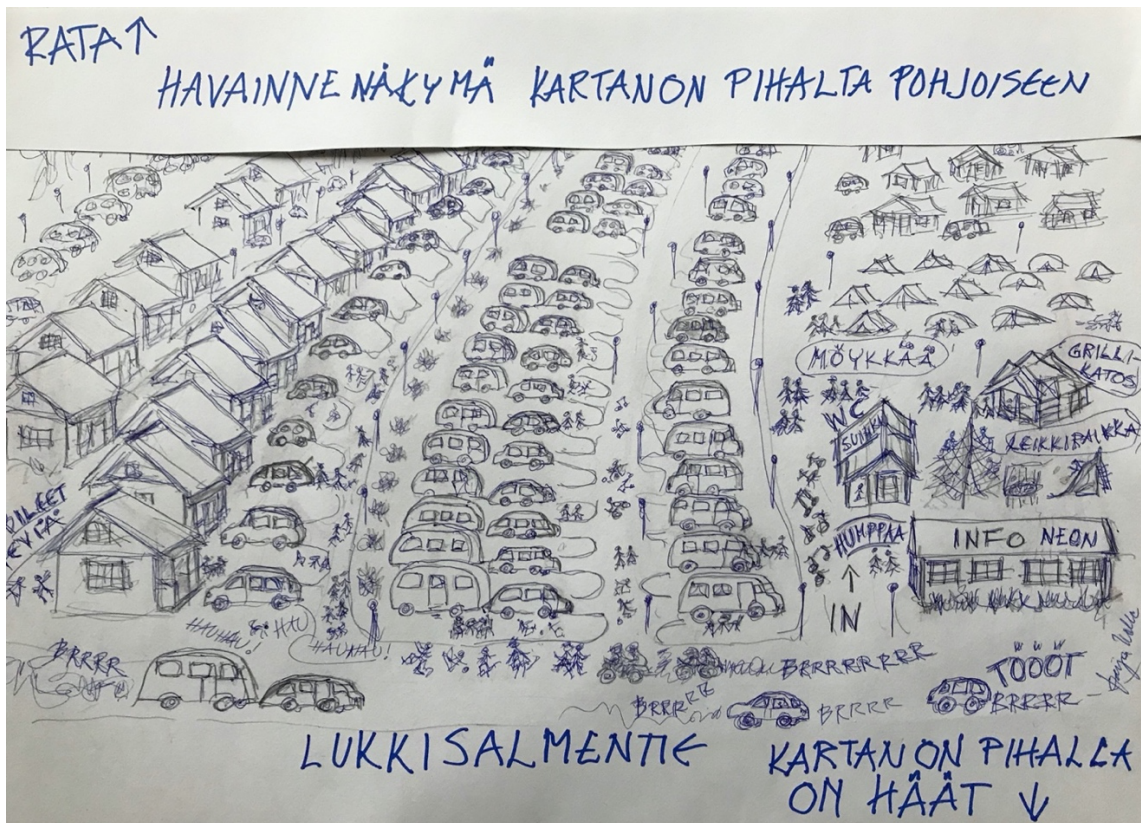 RATA ↑
HAVAINNENÄKYMÄ KARTANON PIHALTA POHJOISEEN
MÖYKKÄÄ
GRILLI-
KATOS
WC
LEIKKIPAIKKA
HUMPPAA
INFO NEON
↑
IN
HAUHAU! HAU
HAUHAU!
BRRRR
BRRRRRRRR
TÖÖÖT
BRRRRR
BRRRR
BRRRR
LUKKISALMENTIE
KARTANON PIHALLA
ON HÄÄT ↓